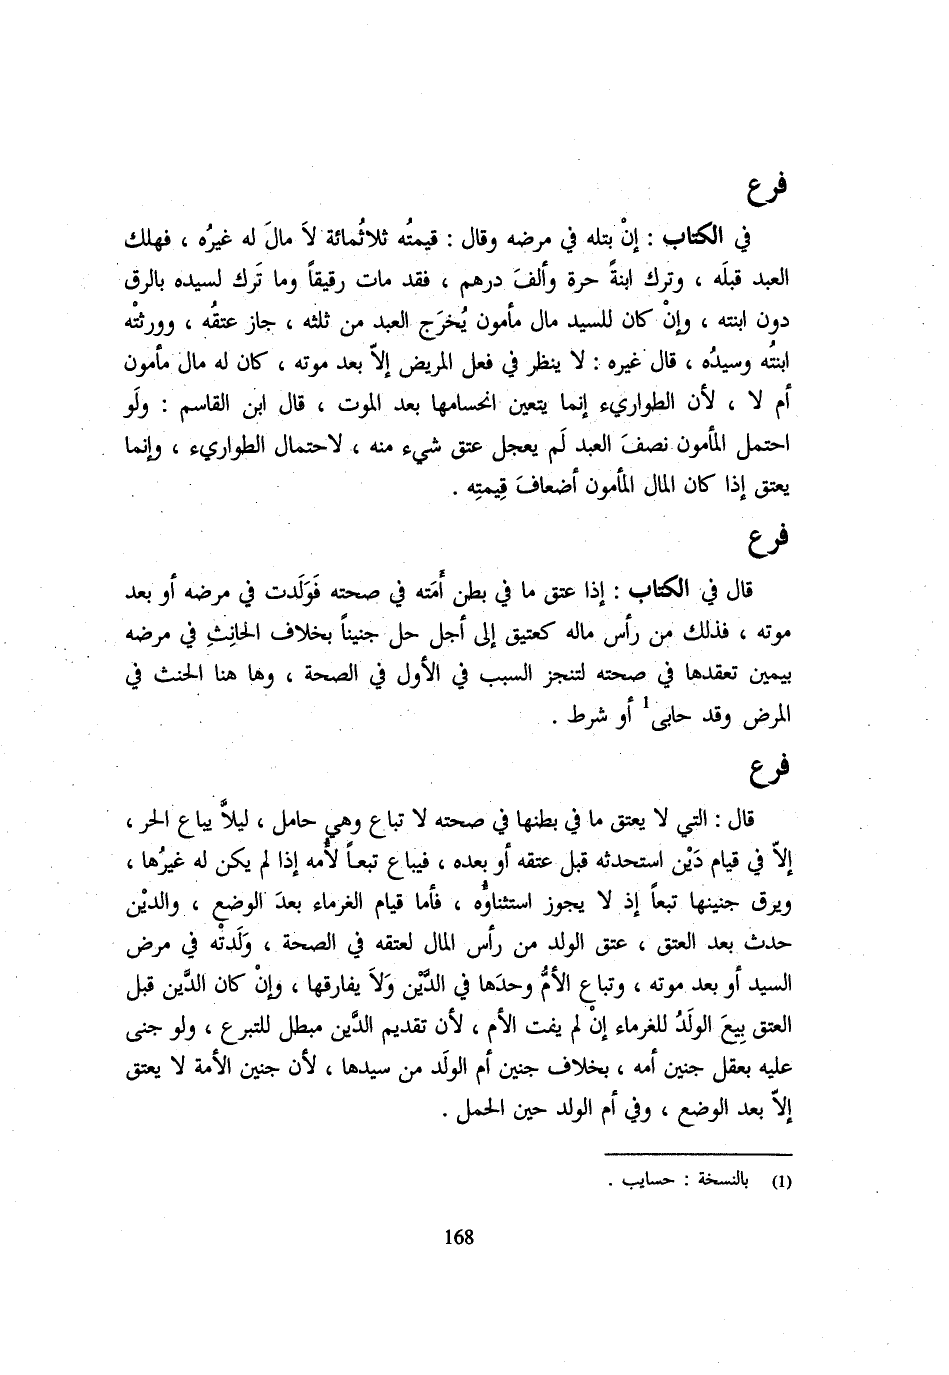 فرع
في الكتاب : إنْ بتله في مرضه وقال : قيمتُه ثلاثُمائة لاَ مالَ له غيرُه ، فهلك
العبد قبلَه ، وترك ابنةً حرة وألفَ درهم ، فقد مات رقيقاً وما تَرك لسيده بالرق
دون ابنته ، وإنْ كان للسيد مال مأمون يُخرَج العبد من ثلثه ، جاز عتقُه ، وورثتْه
ابنتُه وسيدُه ، قال غيره : لا ينظر في فعل المريض إلاّ بعد موته ، كان له مال مأمون
أم لا ، لأن الطواريء إنما يتعين انحسامها بعد الموت ، قال ابن القاسم : ولَو
احتمل المأمون نصفَ العبد لَم يعجل عتق شيء منه ، لاحتمال الطواريء ، وإنما
يعتق إذا كان المال المأمون أضعافَ قِيمتِه .
فرع
قال في الكتاب : إذا عتق ما في بطن أَمَته في صحته فَوَلَدت في مرضه أو بعد
موته ، فذلك من رأس ماله كعتيق إلى أجل حل جنيناً بخلاف الحَانِثِ في مرضه
بيمين تعقدها في صحته لتنجز السبب في الأول في الصحة ، وها هنا الحنث في
المرض وقد حابى1 أو شرط .
فرع
قال : التي لا يعتق ما في بطنها في صحته لا تباع وهي حامل ، ليلاَّ يباع الحر ،
إلاّ في قيام دَيْن استحدثه قبل عتقه أو بعده ، فيباع تبعاً لأُمه إذا لم يكن له غيرُها ،
ويرق جنينها تبعاً إذ لا يجوز استثناوُه ، فأما قيام الغرماء بعدَ الوضع ، والديْن
حدث بعد العتق ، عتق الولد من رأس المال لعتقه في الصحة ، وَلَدتْه في مرض
السيد أو بعد موته ، وتباع الأمُّ وحدَها في الدَّيْن وَلاَ يفارقها ، وإنْ كان الدَّين قبل
العتق بِيعَ الولَدُ للغرماء إنْ لم يفت الأم ، لأن تقديم الدَّين مبطل للتبرع ، ولو جنى
عليه بعقل جنين أمه ، بخلاف جنين أم الولَد من سيدها ، لأن جنين الأمة لا يعتق
إلاّ بعد الوضع ، وفي أم الولد حين الحمل .
(1) بالنسخة : حسايب .
168